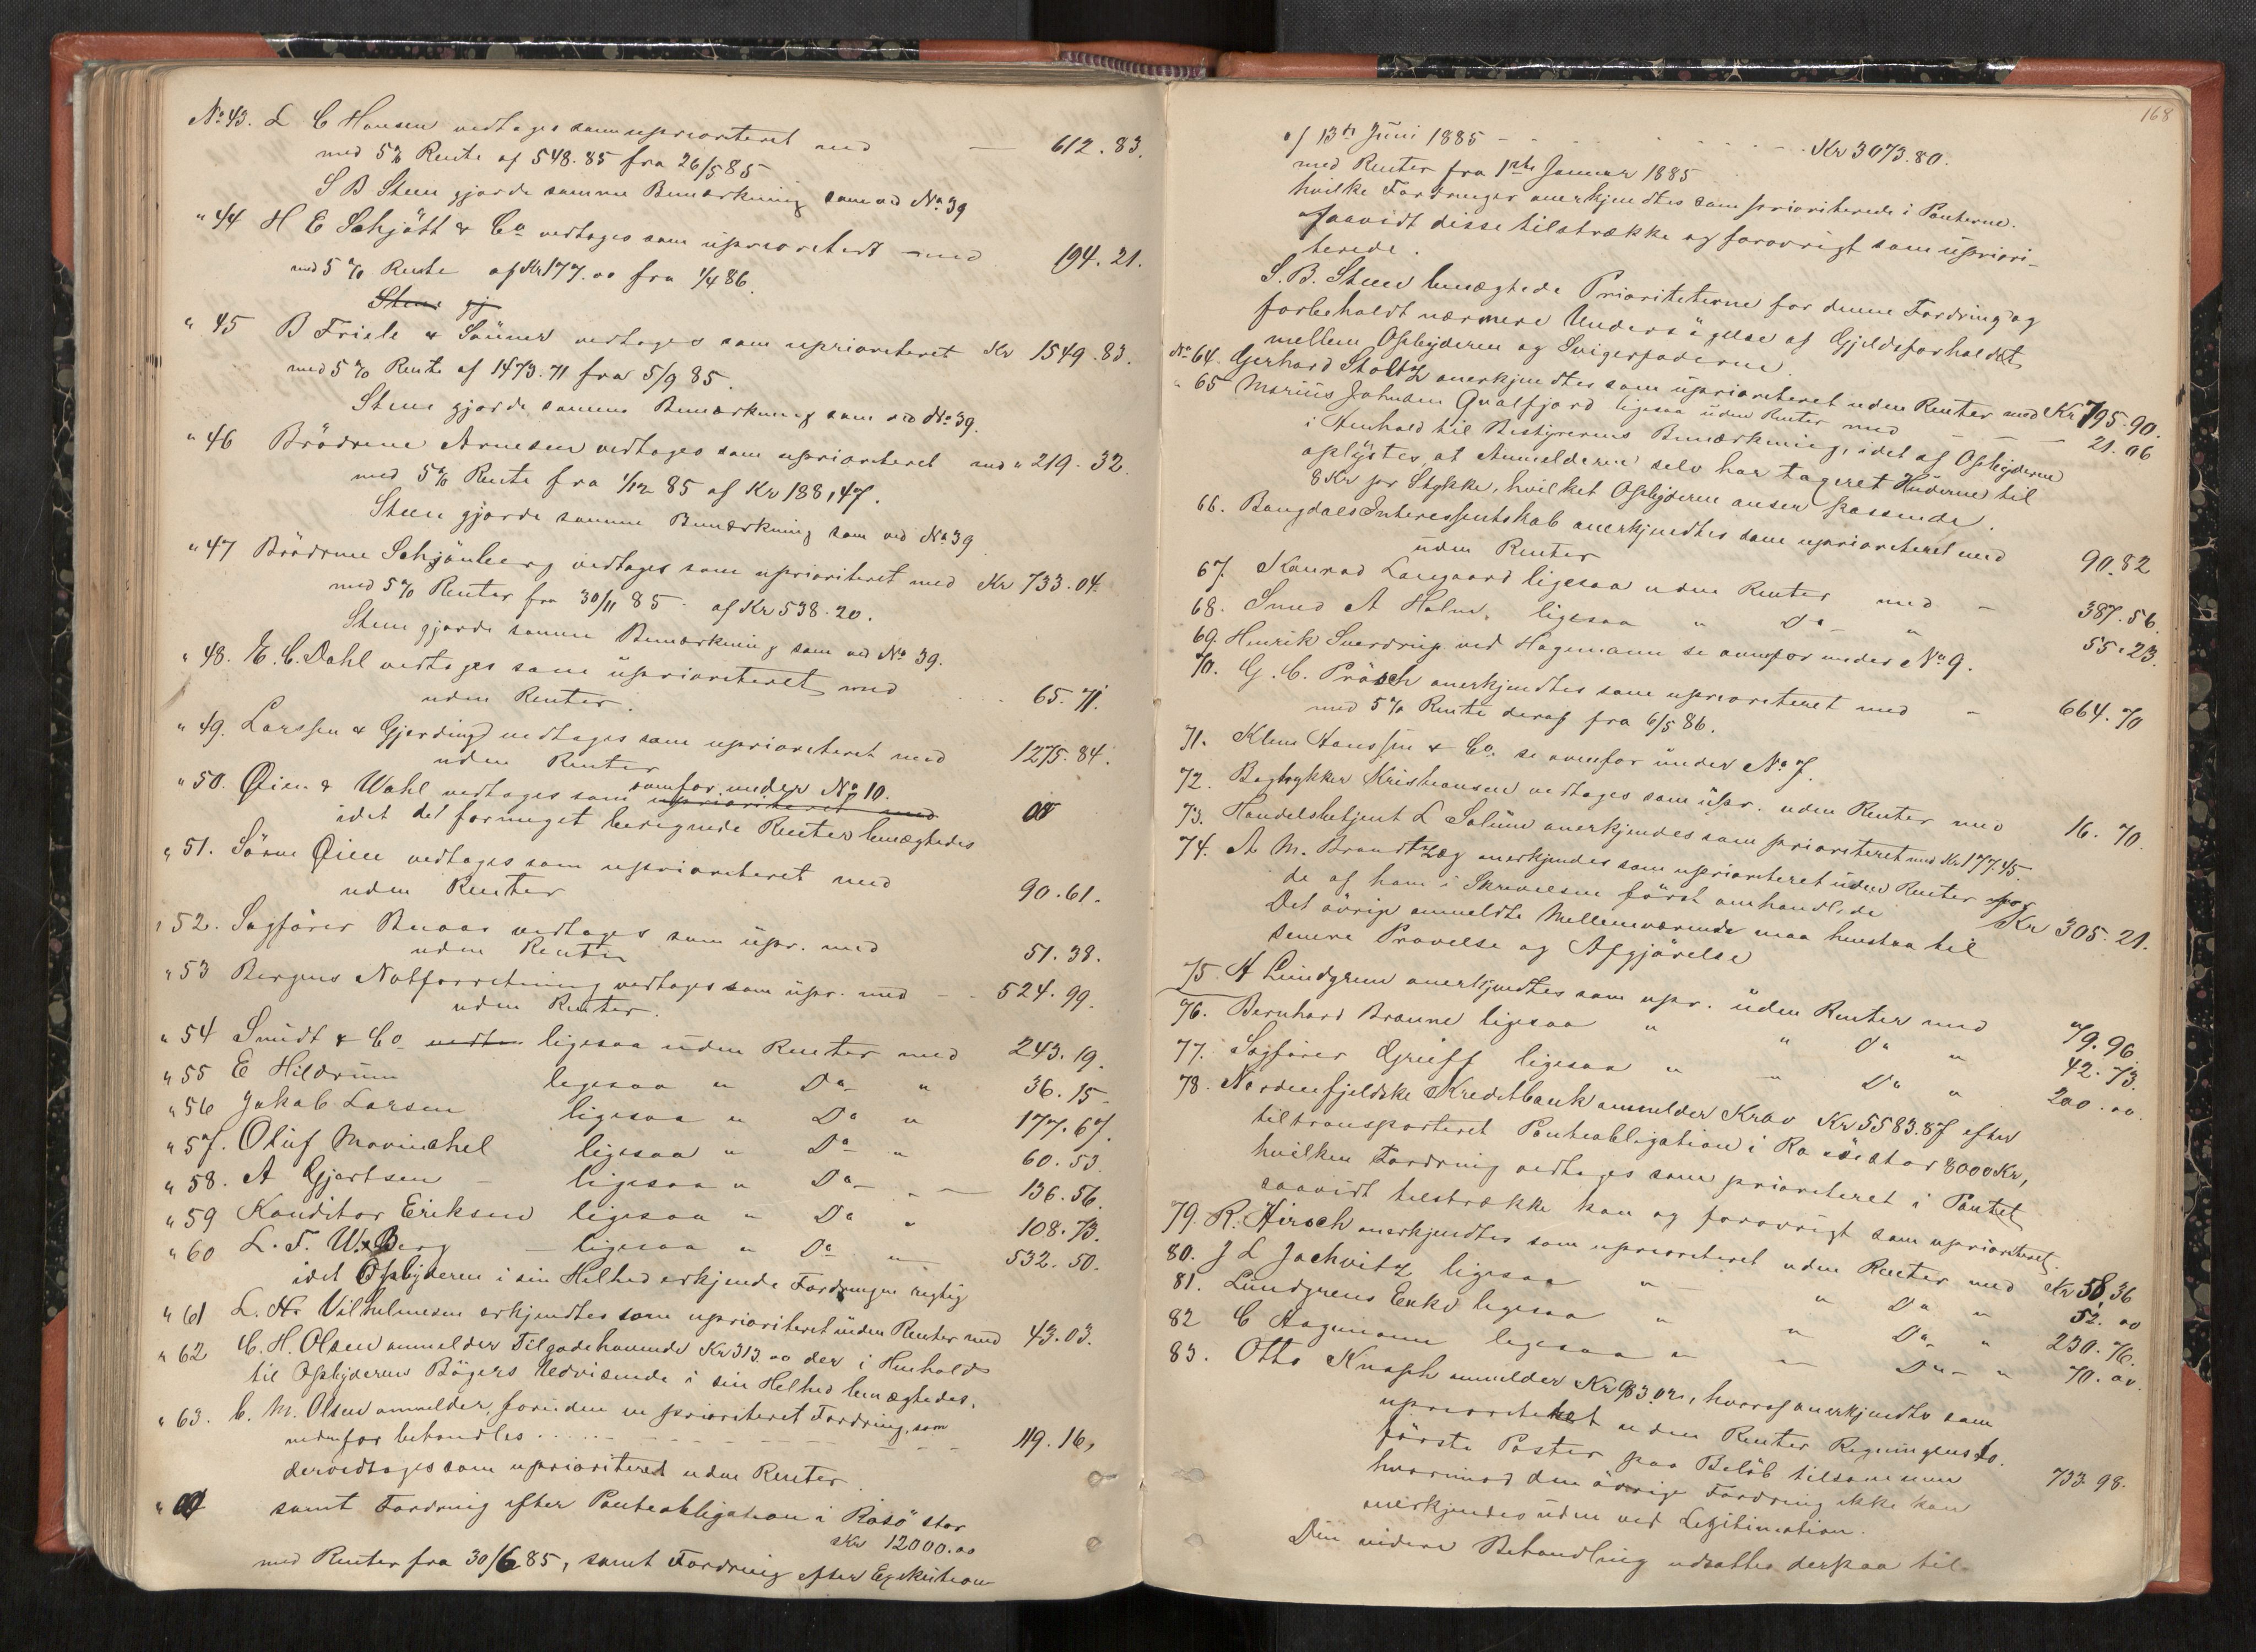 No 43. L C Hansen vedtages som uprioriteret med — 612.83.
med 5% Rente af 548.85 fra 26/5 85
S B Steen gjorde samme Bemærkning som ved No 39
" 44 H E Schjött & Co vedtages som uprioritert med 194.21.
med 5% Rente af Kr 177.00 fra 1/4 86.
Steen gj
" 45 B Friele & Sönner vedtages som uprioriteret Kr 1549.83.
med 5% Rente af 1473.71 fra 5/9 85.
Steen gjorde samme Bemærkning som ved No 39.
" 46 Brödrene Arnesen vedtages som uprioriteret med " 219.32.
med 5% Rente fra 1/12 85 af Kr 188,47.
Steen gjorde samme Bemærkning som ved No 39
" 47 Brödrene Schjönberg vedtages som uprioriteret med Kr 733.04.
med 5% Renter fra 30/11 85 af Kr 538.20.
Steen gjorde samme Bemærkning som ved No 39.
" 48. E. C. Dahl vedtages som uprioriteret med 65.71.
uden Renter.
" 49. Larssen & Gjerding vedtages som uprioriteret med 1275.84.
uden Renter
" 50. Øien & Wahl vedtages som ovenfor under No 10. uprioriteret med
idet det formeget beregnede Renter benægtedes
" 51. Sören Øien vedtages som uprioriteret med 90.61.
uden Renter
" 52. Sagförer Buaas vedtages som upr. med 51.38.
uden Renter
" 53 Bergens Notforretning vedtages som upr. med 524.99.
uden Renter.
" 54 Smidt & Co vedta ligesaa uden Renter med 243.19.
" 55 E Hildrum ligesaa " Do " 36.15
" 56 Jakob Larsen ligesaa " Do " 177.67.
" 57. Oluf Movinchel ligesaa " Do " 60.53.
" 58. A Gjertsen — ligesaa " Do " 136.56.
" 59 Konditor Eriksen ligesaa " Do " 108.73.
" 60 L. F. W. Berg — ligesaa " Do " 532.50.
idet Opbyderen i sin Helhed erkjende Fordringen rigtig
" 61 L. Hr Vilhelmsen erkjendtes som uprioriteret uden Renter med 43.03.
" 62 C. H. Olsen anmelder Tilgodehavende Kr 313.00 der i Henhold
til Opbyderens Bögers Udvisende i sin Helhed benægtedes.
" 63. C. M. Olsen anmelder, foruden en prioriteret Fordring, som
nedenfor behandles 119.16,
der vedtages som uprioriteret uden Renter.
samt Fordring efter Panteobligation i Rosö stor
Kr 12000.00
med Renter fra 30/6 85, samt Fordring efter Exekution
168
af 13de Juni 1885 — Kr 3073.80.
med Renter fra 1ste Januar 1885
hvilke Fordringer anerkjendtes som prioriterede i Panterne.
saavidt disse tilstrække og forøvrigt som upriori-
terede.
S. B. Steen benægtede Prioriteterne for denne Fordring og
forbeholdt nærmere Undersögelse af Gjeldsforholdet
mellem Opbyderen og Svigerfaderen.
No 64. Gerhard Stoltz anerkjendtes som uprioriteret uden Renter med Kr 795.90.
" 65 Marius Johnsen Qvalfjord ligesaa uden Renter med — 21.06
i Henhold til Bestyrerens Bemærkning, idet af Opbyderen
oplystes, at Anmelderen selv har taxeret Huderne til
8 Kr pr Stykke, hvilket Opbyderen anser passende.
66. Bangdals Interessentskab anerkjendtes som uprioriteret med 90.82
uden Renter
67. Konrad Langaard ligesaa uden Renter med — 387.56.
68. Smed A Holm. ligesaa " Do " 55.23.
69. Henrik Sverdrup ved Hagemann se ovenfor under No 9.
70. G. C. Prösch anerkjendtes som uprioriteret med — 664.70
med 5% Rente deraf fra 6/5 86.
71. Klem Hanssen & Co. se ovenfor under No 7.
72. Bogtrykker Kristiansen vedtages som upr. uden Renter med 16.70.
73. Handelsbetjent L Solum anerkjendes som prioriteret med Kr 177.45.
74. A M. Brandtzæg anerkjendes som uprioriteret uden Renter for
de af ham i Skrivelsen först omhandlede Kr 305.21.
Det övrige anmeldte Mellemværende maa henstaa til
senere Prövelse og Afgjörelse
75. H Lundgren anerkjendtes som upr. uden Renter med 79.96
76. Bernhard Braune ligesaa " " Do " 42.73.
77. Sagförer Greiff ligesaa " " Do " 200.00.
78. Nordenfjeldske Kreditbank anmelder Krav Kr 5583.87 efter
tiltransporteret Panteobligation i Rosö stor 8000 Kr,
hvilken Fordring vedtages som prioriteret i Pantet
saavidt tilstrække kan og forøvrigt som uprioriteret.
79. R. Hirsch anerkjendtes som uprioriteret uden Renter med Kr 58,36
80. J L Jachvitz ligesaa " " Do " 52.00
81. Lundgrens Enke ligesaa " " Do " 230.76.
82 C Hagemann ligesaa " " Do " 70.00.
83. Otto Knoph anmelder Kr 983.02, hvoraf anerkjendtes som
uprioriteret uden Renter Regningens to.
förste Poster paa Belöb tilsammen 733.98.
hvorimod den övrige Fordring ikke kan
anerkjendes uden ved Legitimation.
Den videre Behandling udsattes derpaa til